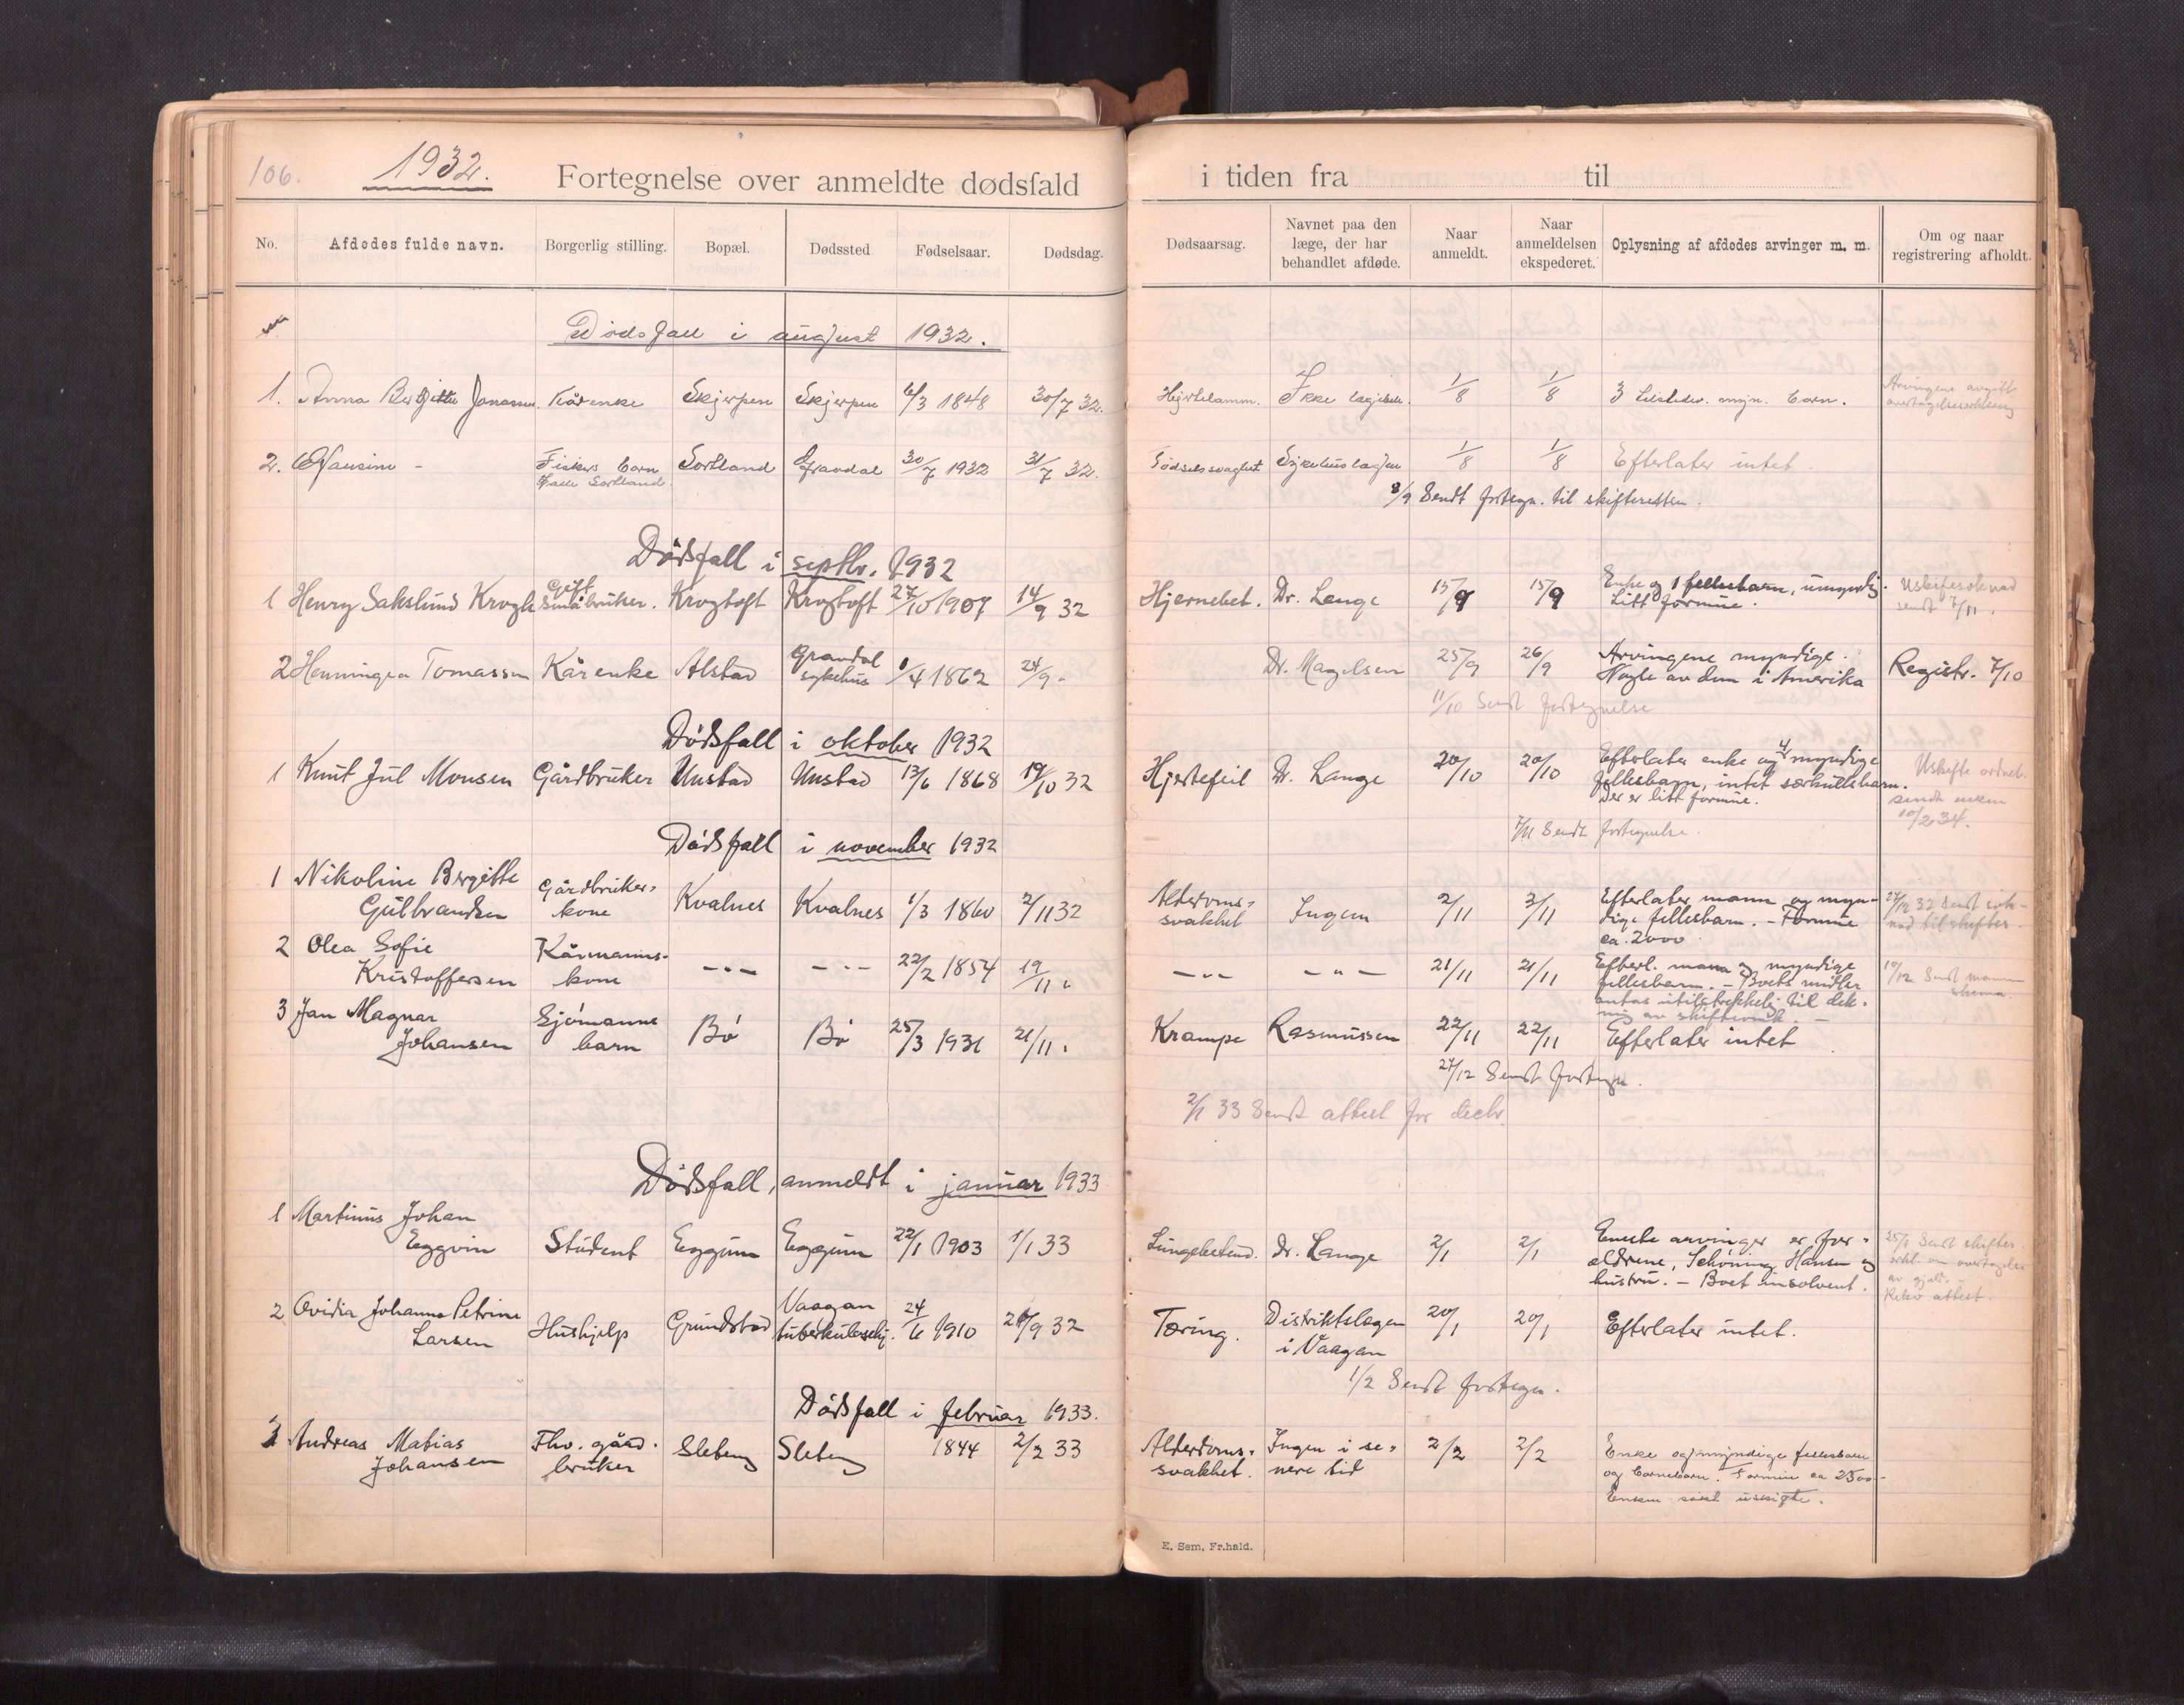 106.
1932.
Fortegnelse over anmeldte dødsfald
i tiden fra til
No. Afdødes fulde navn. Borgerlig stilling. Bopæl. Dødssted Fødselsaar. Dødsdag.
Dødsaarsag. Navnet paa den læge, der har behandlet afdøde. Naar anmeldt. Naar anmeldelsen ekspederet. Oplysning af afdødes arvinger m. m. Om og naar registrering afholdt.
Dødsfall i august 1932.
1. Anna Bergitte Kårenke Skjerpen Skjerpen 6/3 1848 30/7 32. Hjertelamm. Ikke 1/8 1/8 3 myn. barn. Arvingene avgitt
2. Fiskers barn Sortland Gravdal 30/7 1932 31/7 32. Fødselssvaghet Sykehuslægen 1/8 1/8 Efterlater intet
8/9 Sendt fortegn. til skifteretten.
Dødsfall i septbr. 1932
1 Henry Gift småbruker. Krogtoft Krogtoft 27/10 1907 14/9 32 Hjernebet. Dr. Lange 15/9 15/9 Enke og 1 fellesbarn, umyndig.
Litt formue. sendt 7/11.
2 Henningea Tomassen Kårenke Alstad Gravdal sykehus 1/4 1862 24/9 - Dr. Magelsen 25/9 26/9 Arvingene myndige.
Nogle av dem i Amerika Registr. 7/10
11/10 Sendt fortegnelse
Dødsfall i oktober 1932
1 Knut Jul Monsen Gårdbruker Unstad Unstad 13/6 1868 19/10 32 Hjertefeil Dr. Lange 20/10 20/10 Efterlater enke og 4 myndige
fellesbarn, intet særkullsbarn.
Der er litt formue.
Uskifte ordnet.
sendt enken
10/2 34.
7/11 Sendt fortegnelse.
Dødsfall i november 1932
1 Nikoline Bergitte
Gulbrandsen Gårdbruker-
kone Kvalnes Kvalnes 1/3 1860 2/11 32 Alderdoms-
svakhet Ingen 2/11 3/11 Efterlater mann og myn-
dige fellesbarn. - Formue
ca. 2000
2 Olea Sofie
Kristoffersen Kårmanns-
kone - " - - " - 22/2 1854 19/11 " - " - - " - 21/11 21/11 Efterl. mann og myndige
fellesbarn. - Boets midler
antas utilstrekkelig til dek-
ning av
10/12 Sendt mann
skema
3 Jan Magnar
Johansen Sjømanns
barn Bø Bø 25/3 1931 21/11 " Krampe Rasmussen 22/11 22/11 Efterlater intet
27/12 Sendt fortegn.
2/1 33 Sendt attest for decbr.
Dødsfall, anmeldt i januar 1933
1 Martinus Johan
Eggvin Student Eggum Eggum 22/1 1903 1/1 33 Lungebetend. Dr. Lange 2/1 2/1 Eneste arvinger er for-
eldrene, Schöning Hansen og
hustru. - Boet insolvent.
25/1 Sendt skifter
av gjeld. -
attest.
2 Ovidia Johanna Petrine
Larsen Hushjelp Grundstad Vaagan
tuberkulosehj. 24/6 1910 9 32 Tæring. Distriktslægen
i Vaagan 20/1 20/1 Efterlater intet.
1/2 Sendt fortegn.
Dødsfall i februar 1933.
Andreas Matias
Johansen Fhv. gård-
bruker Sleteng Sleteng 1844 2/2 33 Alderdoms-
svakhet. Ingen i se-
nere tid 2/2 2/2 Enke og myndige fellesbarn
og barnebarn. Formue ca 2500-
Enken
E. Sem, Fr.hald.